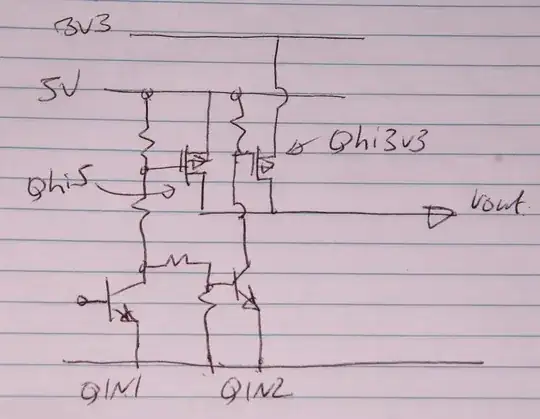 3v3
5V
Qhi3v3
Qhi5
Vout
QIN1 QIN2